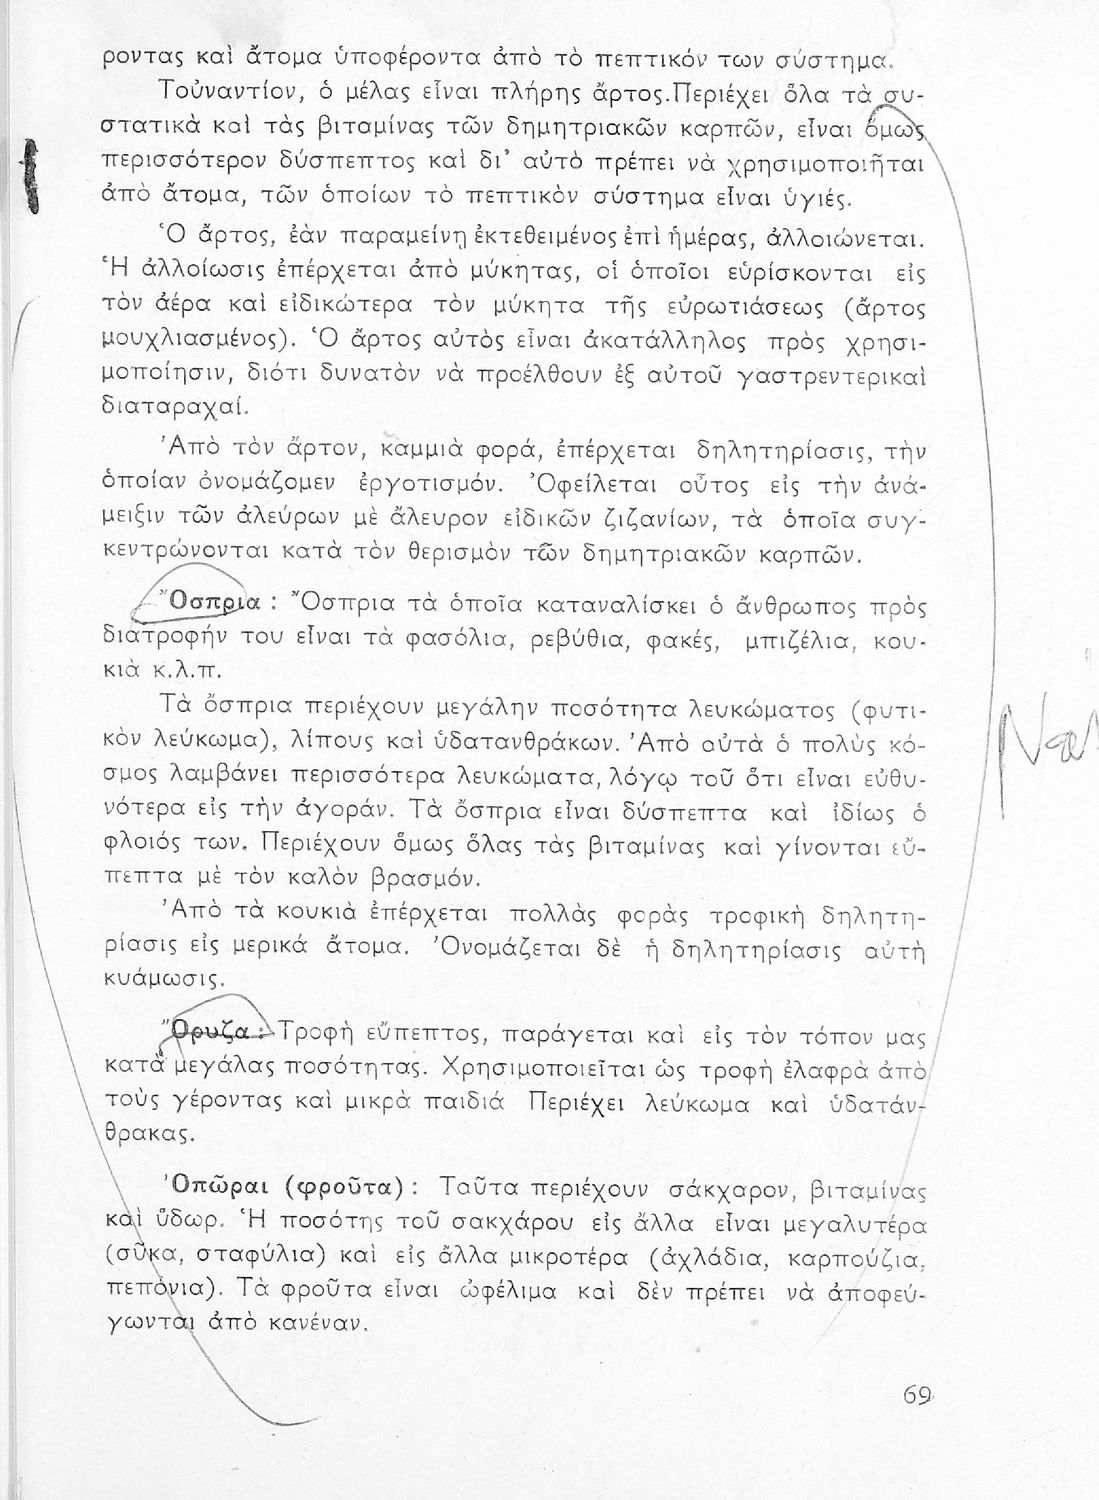 ροντας καὶ ἄτομα ὑποφέροντα ἀπὸ τὸ πεπτικόν των σύστημα.
Τοὐναντίον, ὁ μέλας εἶναι πλήρης ἄρτος.Περιέχει ὅλα τὰ συ-
στατικὰ καὶ τὰς βιταμίνας τῶν δημητριακῶν καρπῶν, εἶναι ὅμως
περισσότερον δύσπεπτος καὶ δι᾿ αὐτὸ πρέπει νὰ χρησιμοποιῆται
ἀπὸ ἄτομα, τῶν ὁποίων τὸ πεπτικὸν σύστημα εἶναι ὑγιές.
Ὁ ἄρτος, ἐὰν παραμείνῃ ἐκτεθειμένος ἐπὶ ἡμέρας, ἀλλοιώνεται.
Ἡ ἀλλοίωσις ἐπέρχεται ἀπὸ μύκητας, οἱ ὁποῖοι εὑρίσκονται εἰς
τὸν ἀέρα καὶ εἰδικώτερα τὸν μύκητα τῆς εὐρωτιάσεως (ἄρτος
μουχλιασμένος). Ὁ ἄρτος αὐτὸς εἶναι ἀκατάλληλος πρὸς χρησι-
μοποίησιν, διότι δυνατὸν νὰ προέλθουν ἐξ αὐτοῦ γαστρεντερικαὶ
διαταραχαί.
Ἀπὸ τὸν ἄρτον, καμμιὰ φορά, ἐπέρχεται δηλητηρίασις, τὴν
ὁποίαν ὀνομάζομεν ἐργοτισμόν. Ὀφείλεται οὗτος εἰς τὴν ἀνά-
μειξιν τῶν ἀλεύρων μὲ ἄλευρον εἰδικῶν ζιζανίων, τὰ ὁποῖα συγ-
κεντρώνονται κατὰ τὸν θερισμὸν τῶν δημητριακῶν καρπῶν.
Ὄσπρια : Ὄσπρια τὰ ὁποῖα καταναλίσκει ὁ ἄνθρωπος πρὸς
διατροφήν του εἶναι τὰ φασόλια, ρεβύθια, φακές, μπιζέλια, κου-
κιὰ κ.λ.π.
Τὰ ὄσπρια περιέχουν μεγάλην ποσότητα λευκώματος (φυτι-
κὸν λεύκωμα), λίπους καὶ ὑδατανθράκων. Ἀπὸ αὐτὰ ὁ πολὺς κό-
σμος λαμβάνει περισσότερα λευκώματα, λόγῳ τοῦ ὅτι εἶναι εὐθυ-
νότερα εἰς τὴν ἀγοράν. Τὰ ὄσπρια εἶναι δύσπεπτα καὶ ἰδίως ὁ
φλοιός των. Περιέχουν ὅμως ὅλας τὰς βιταμίνας καὶ γίνονται εὔ-
πεπτα μὲ τὸν καλὸν βρασμόν.
Ἀπὸ τὰ κουκιὰ ἐπέρχεται πολλὰς φορὰς τροφικὴ δηλητη-
ρίασις εἰς μερικά ἄτομα. Ὀνομάζεται δὲ ἡ δηλητηρίασις αὐτὴ
κυάμωσις.
Ὄρυζα : Τροφὴ εὔπεπτος, παράγεται καὶ εἰς τὸν τόπον μας
κατὰ μεγάλας ποσότητας. Χρησιμοποιεῖται ὡς τροφὴ ἐλαφρὰ ἀπὸ
τοὺς γέροντας καὶ μικρὰ παιδιά Περιέχει λεύκωμα καὶ ὑδατάν-
θρακας.
Ὀπῶραι (φροῦτα) : Ταῦτα περιέχουν σάκχαρον, βιταμίνας
καὶ ὕδωρ. Ἡ ποσότης τοῦ σακχάρου εἰς ἄλλα εἶναι μεγαλυτέρα
(σῦκα, σταφύλια) καὶ εἰς ἄλλα μικροτέρα (ἀχλάδια, καρπούζια,
πεπόνια). Τὰ φροῦτα εἶναι ὠφέλιμα καὶ δὲν πρέπει νὰ ἀποφεύ-
γωνται ἀπὸ κανέναν.
69